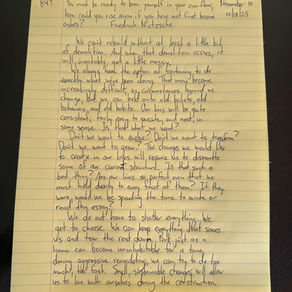 847
You must be ready to burn yourself in your own flame;
how could you rise anew if you have not first become
ashes? Friedrich Nietzsche
November 10
10/13/25
We can't rebuild without at least a little bit
of demolition. And when that demolition occurs, it
will inevitably, get a little messy.
We always have the option of continuing to do
exactly what we've been doing. That may become
increasingly difficult, as circumstances beyond us
change, but we can hold onto old beliefs, old
behaviors, and old habits. Our lives will be quite
consistent, fairly easy to execute, and neat, in
some sense. Is that what we want?
Don't we want to evolve? Don't we want to transform?
Don't we want to grow? The changes we would like
to create in our lives will require us to dismantle
some of our current structure. Is that such a
bad thing? Are our lives so perfect now that we
must hold dearly to every shred of them? If they
were, would we be spending the time to write or
read this essay?
We do not have to shatter everything. We
get to choose. We can keep everything that serves
us and tear the rest down. But just as a
home can become uninhabitable for a time
during aggressive remodeling, we can try to do too
much, too fast. Small, sustainable changes will allow
us to live with ourselves during the construction.